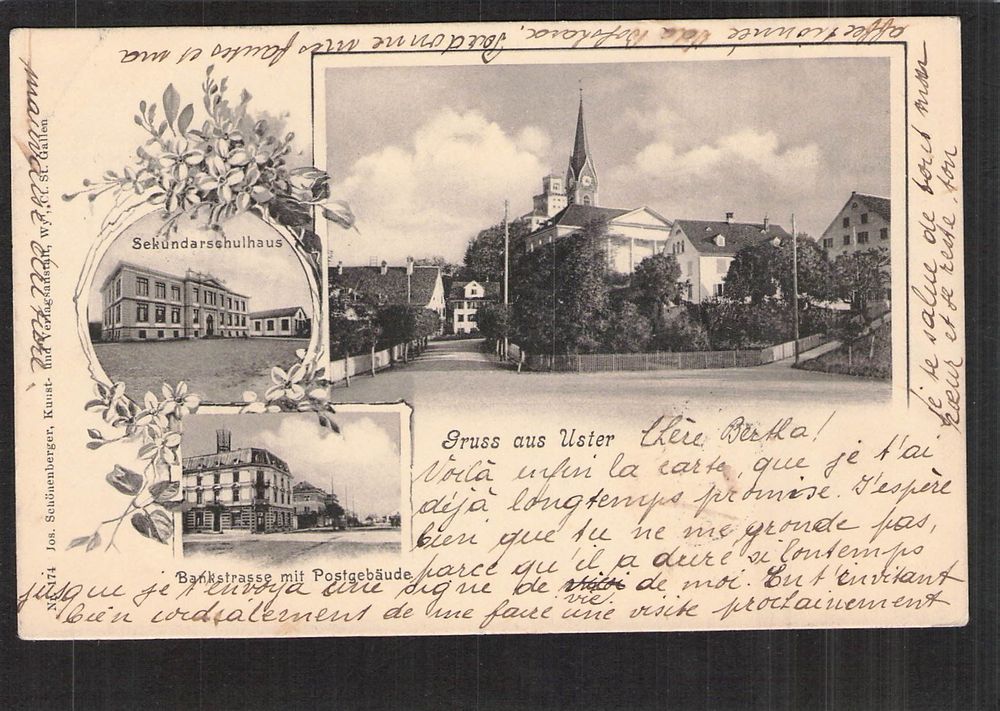 Sekundarschulhaus
Bankstrasse mit Postgebäude
Gruss aus Uster
No. 174 Jos. Schönenberger, Kunst- und Verlagsanstalt, Wyl, Ct. St. Gallen
Chère Bertha!
Voilà enfin la carte, que je t'ai
déjà longtemps promise. J'espère
bien que tu ne me gronde pas,
parce qu'il a duré si lontemps
jusque je t'envoya une signe de vie de moi. En t'invitant
bien cordialement de me faire une visite prochainement
je te salue de tout mon
cœur et te reste, ton
affectionnée Ida
Pardonne mes fautes et ma
mauvaise